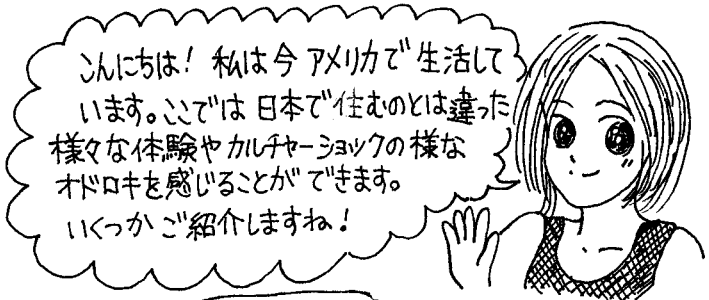 こんにちは! 私は今 アメリカで 生活して
います。ここでは 日本で住むのとは違った
様々な体験や カルチャーショックの様な
オドロキを感じることが できます。
いくつか ご紹介しますね!